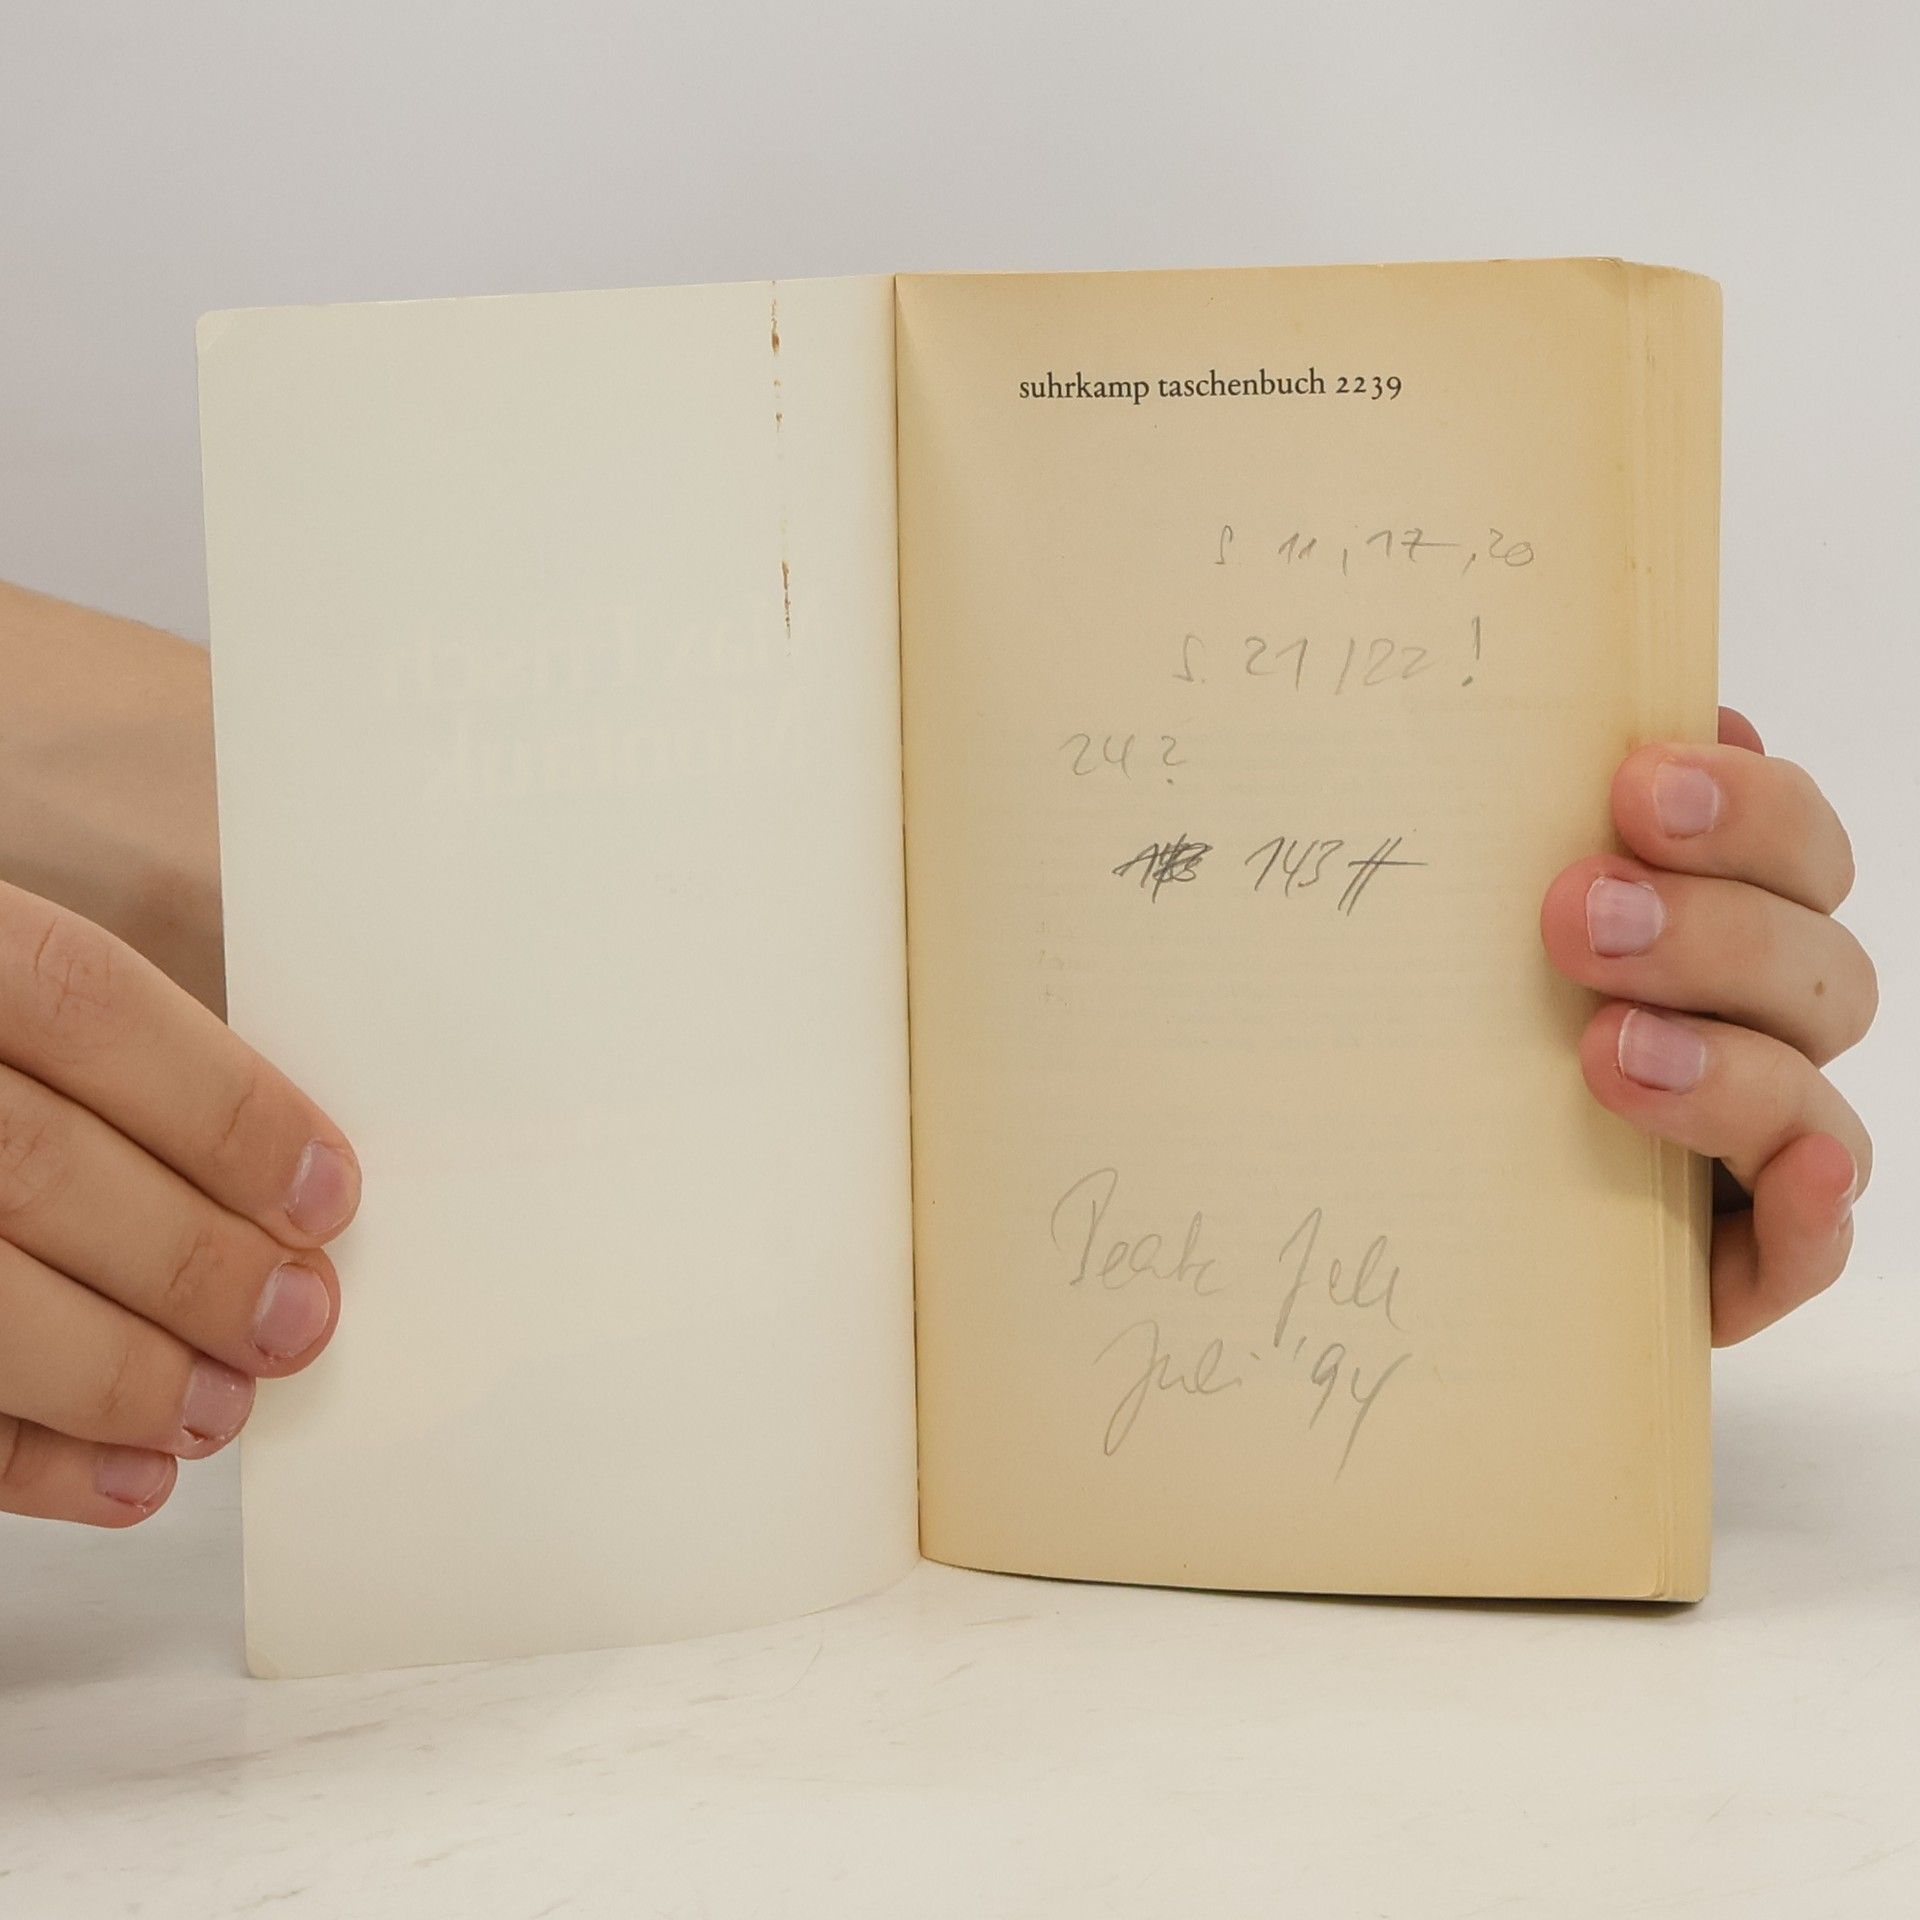 suhrkamp taschenbuch 2239
S. 11, 17, 20
S. 21/22!
24?
143 #
Beate
Juli '94